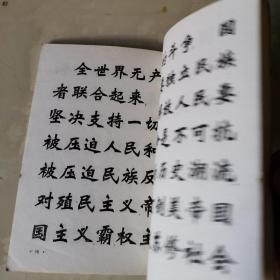 全世界无产
者联合起来
坚决支持一切
被压迫人民和
被压迫民族反
对殖民主义帝
国主义霸权主
斗争 国
要独立民族
放人民要
是不可抗
历史潮流
美帝国
社会